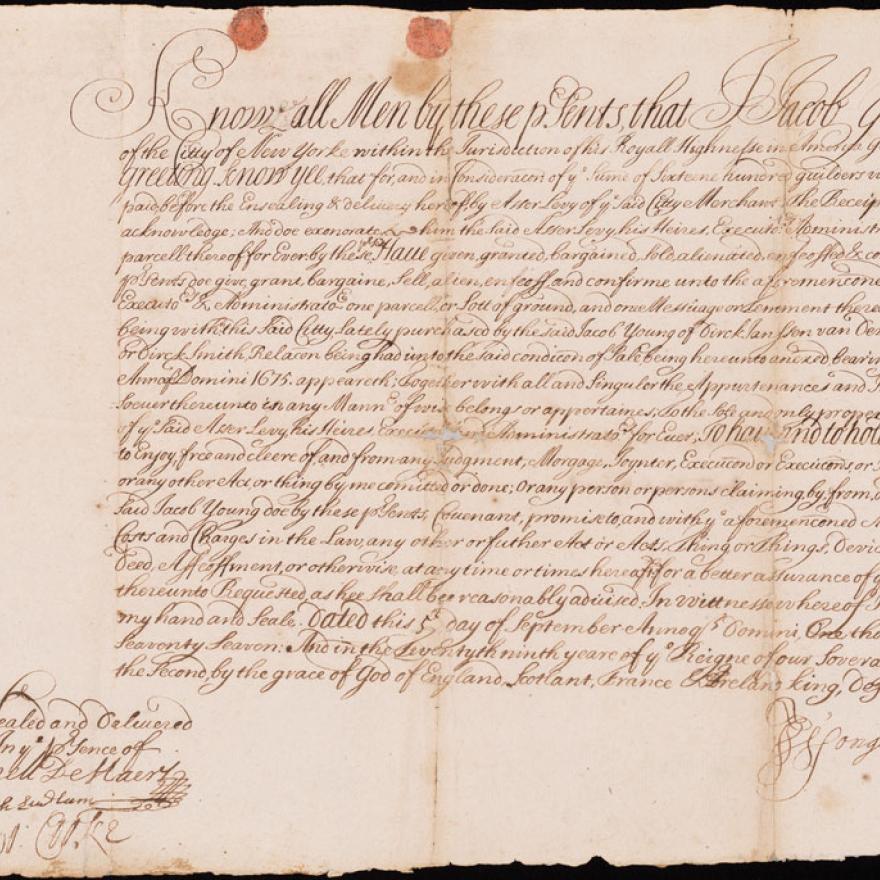 Know all Men by these pSents, that I Jacob
of the Citty of New Yorke within the Jurisdiction of his Royall Highnesse in America
Greeting. know yee, that for, and in Consideracon of yᵉ Sume of Sixteene hundred guilders
paid, before the Ensealing & delivery hereof, by Asser Levy of yᵉ said Citty Merchant, The Receip
acknowledge; And doe exonerate him the said Asser Levy, his Heires, Executoʳˢ Administr
parcell thereof for Ever by these pSents Haue given, granted, bargained, Sold, alienated, enfeoffed &
pSents doe give, grant, bargaine, Sell, alien, enfeoff, and confirme unto the aforemencone
Executoʳˢ & Administratoʳˢ one parcell, or Lott of ground, and one Messuage or Tenement there
being with this Said Citty, Lately purchased by the Said Jacob Young of Dirck Janssen van De
or Dirck Smith, Relacon being had unto the said condicon of Sale, being hereunto anexed bearin
Anno Domini 1675. appeareth; Together with all and Singuler the Appurtenances and
Soever thereunto in any Mannʳ of wise belongs or appertaines, To the Sole and only proper
of yᵉ Said Asser Levy, his Heires Execut Administratoʳˢ for Euer; To haue and to hol
to Enjoy, free and cleere of, and from any Judgment, Morgage, Joynter, Execucon or Execucons, or
or any other Act, or thing by me comitted or done; Or any person or persons claiming, by, from,
Said Jacob Young doe by these pSents, Couenant, promise to, and with yᵉ aforemenconed
Costs and Charges in the Law, any other or futher Act or Acts, Thing or Things, Devic
Deed, Affeoffment, or otherwise, at any time or times hereafter for a better assurance of
thereunto Requested, as hee Shall bee reasonably advised. In Wittnesse whereof
my hand and Seale. Dated this 5ᵗʰ day of September Annoqʳ Domini, One tho
Seaventy Seaven: And in the ninth yeare of yᵉ Reigne of our Sovera
the Second, by the grace of God of England, Scotland, France & Ireland king, De
ealed and Delivered
In yᵉ pSence of
De Haert
Ludlam
Cooke